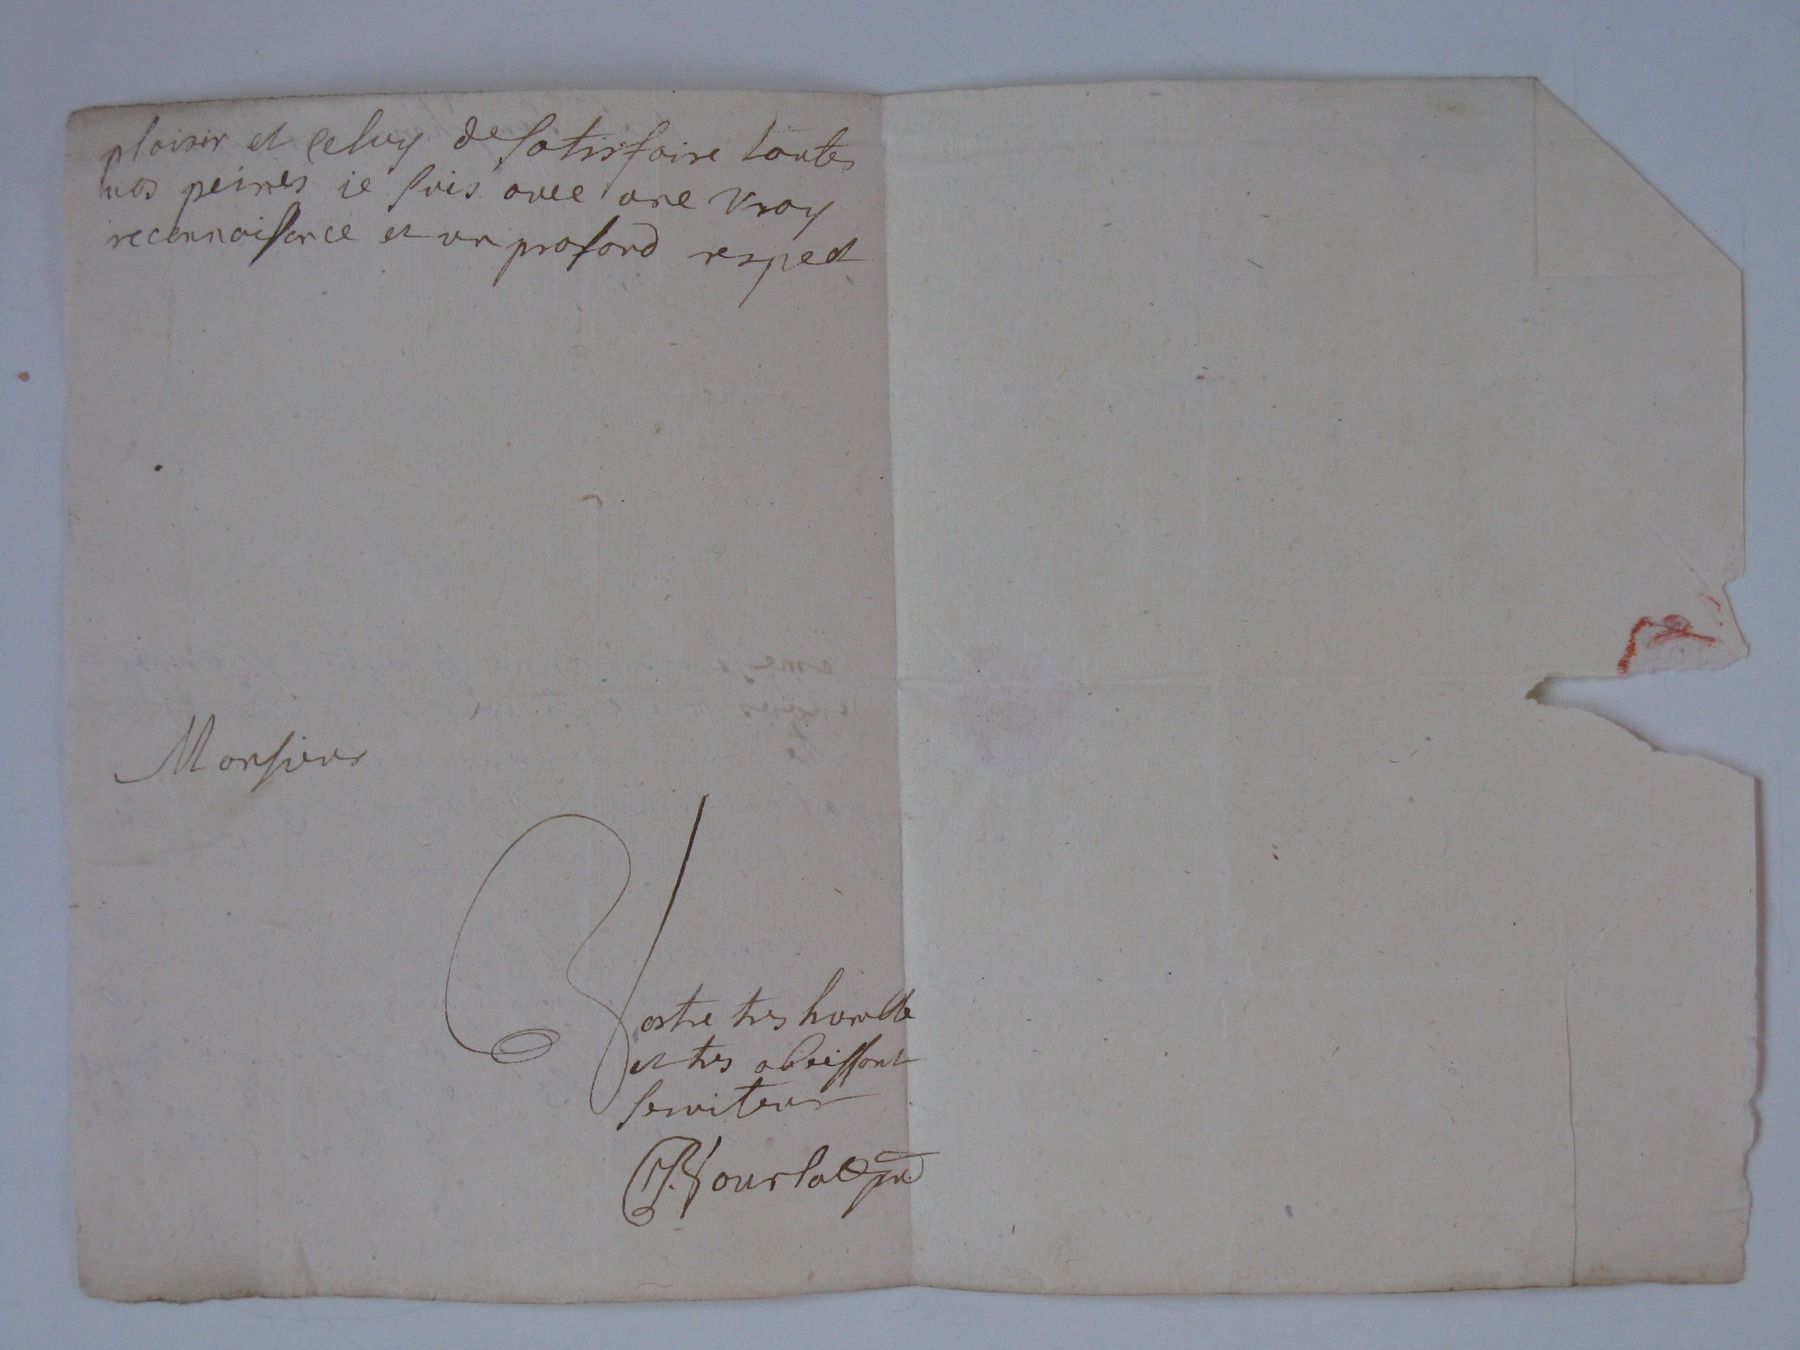 plaisir et Celuy de satisfaire toutes
vos peines ie suis avec une vray
reconnaissance et un profond respect
Monsieur
Vostre tres humble
et tres obeissant
serviteur